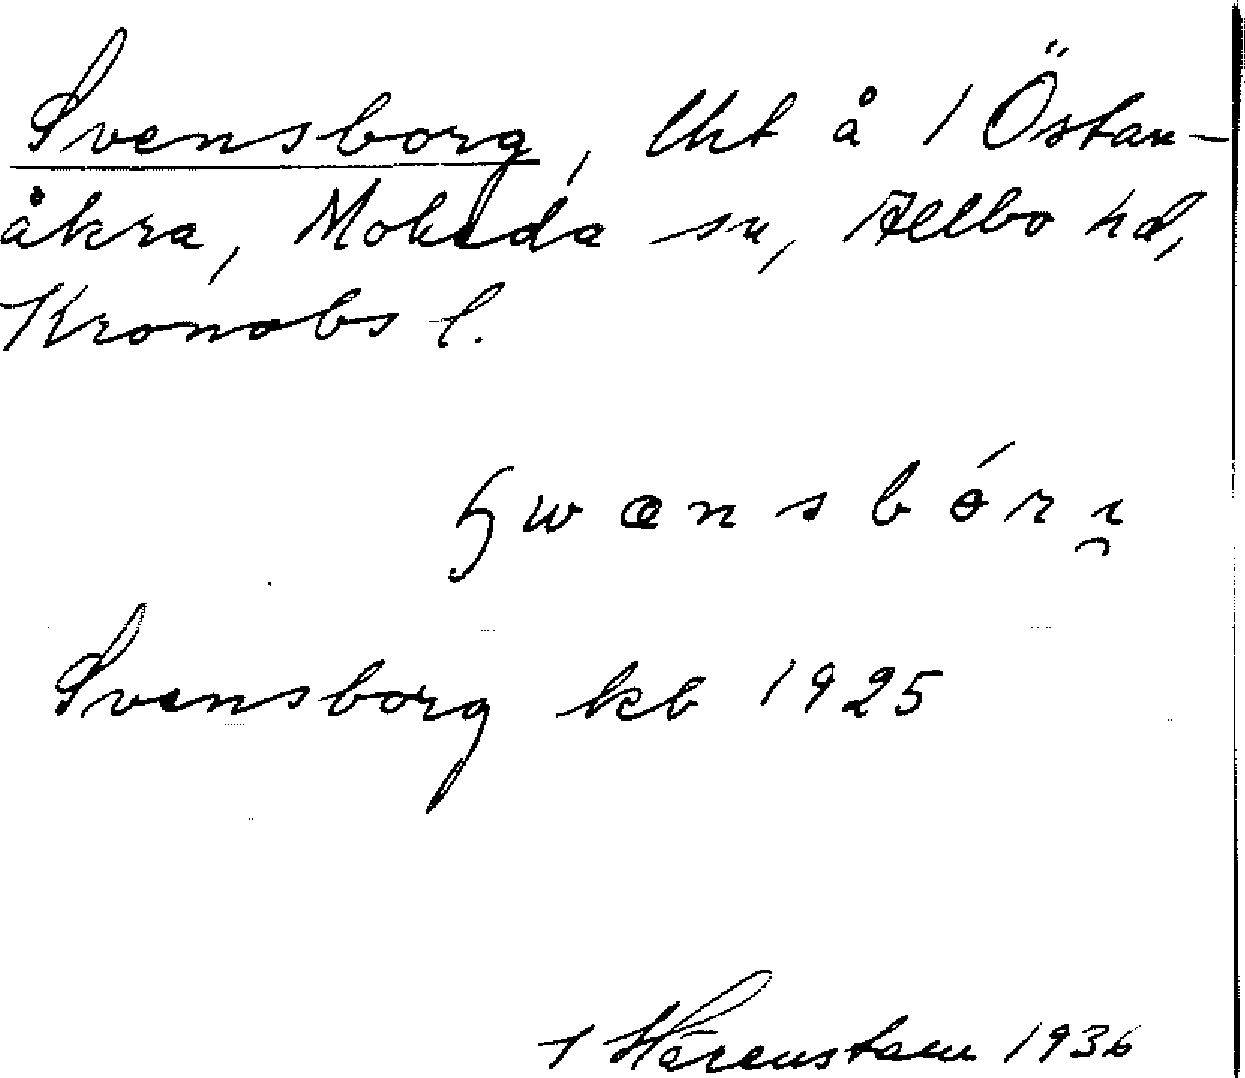 Svensborg, lht å 1 Östan-
åkra, Moheda sn, Allbo hd,
Kronobs l.
swænsbórı̯
Svensborg kb 1925
1936